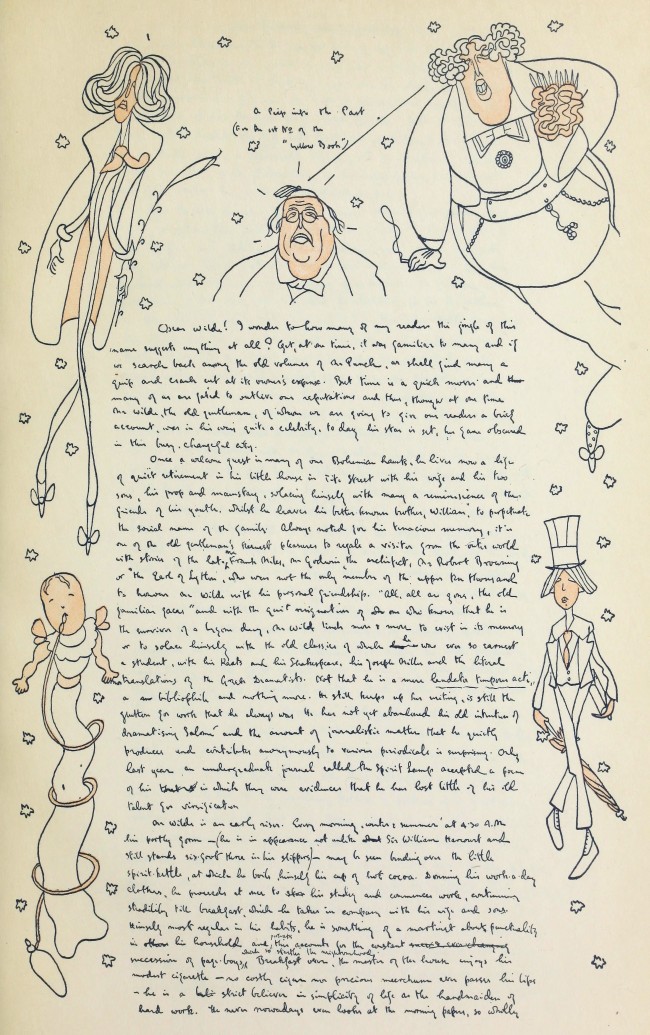 A Peep into the Past
(For the 1st No of the
"Yellow Book")
Oscar Wilde! I wonder to how many of my readers the jingle of this
name suggests anything at all? Yet, at one time, it was familiar to many and if
we search back among the old volumes of Mr Punch, we shall find many a
quip and crank cut at its owner's expense. But time is a quick mover and
many of us are fated to outlive our reputations and thus, though at one time
Mr Wilde, the old gentleman, of whom we are going to give our readers a brief
account, was in his way quite a celebrity, to day his star is set, his fame obscured
in this busy, changeful city.
Once a welcome guest in many of our Bohemian haunts, he lives now a life
of quiet retirement in his little house in Tite Street with his wife and his two
sons, his prop and mainstay, solacing himself with many a reminiscence of the
friends of his youth. Whilst he leaves his better known brother, William, to perpetuate
the social name of the family. Always noted for his tenacious memory, it is
one of the old gentleman's keenest pleasures to regale a visitor from the outer world
with stories of the late Mr Frank Miles, Mr Godwin the architect, Mr Robert Browning
or the Earl of Lytton, who were not the only members of the upper ten thousand
to honour Mr Wilde with his personal friendship. "All, all are gone, the old
familiar faces" and with the quiet resignation of one who knows that he is
the survivor of a bygone day, Mr Wilde tends more & more to exist in its memory
or to solace himself with the old classics of which he was ever so earnest
a student, with his Keats and his Shakespeare, his Joseph Miller and the literal
translations of the Greek Dramatists. Not that he is a mere laudator temporis acti,
a bibliophile and nothing more. He still keeps up his writing, is still the
glutton for work that he always was. He has not yet abandoned his old intention of
dramatising Salomé and the amount of journalistic matter that he quietly
produces and contributes anonymously to various periodicals is surprising. Only
last year an undergraduate journal called the Spirit Lamp accepted a poem
of his in which there were evidences that he has lost little of his old
talent for versification
Mr Wilde is an early riser. Every morning, winter & summer at 4.30 A.M
his portly form (he is in appearance not unlike Sir William Harcourt and
still stands six-foot three in his slippers) may be seen bending over the little
spirit-kettle, at which he boils himself his cup of hot cocoa. Donning his work-a-day
clothes, he proceeds at once to his study and commences work, continuing
steadily till breakfast, which he takes in company with his wife and sons.
Himself most regular in his habits, he is something of a martinet about punctuality
in his household and perhaps this accounts for the constant
succession of page-boys, which so startles the neighbourhood.
Breakfast over, the master of the house enjoys his
modest cigarette — no costly cigar nor precious meerschaum ever passes his lips
— he is a strict believer in simplicity of life as the handmaiden of
hard work. He never nowadays even looks at the morning papers, so wholly